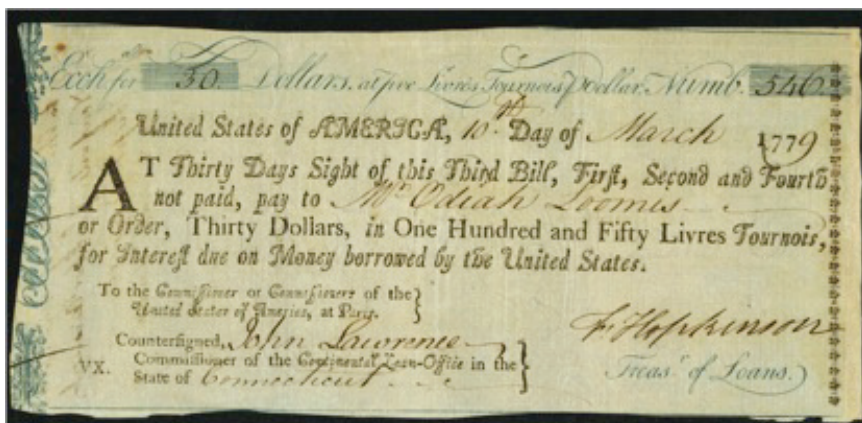 Exch for 30 Dollars, at five Livres Tournois ⅌ Dollar. Numb. 546
United States of AMERICA, 10th Day of March 1779
AT Thirty Days Sight of this Third Bill, First, Second and Fourth
not paid, pay to Mr Odiah Loomis
or Order, Thirty Dollars, in One Hundred and Fifty Livres Tournois,
for Interest due on Money borrowed by the United States.
To the Commissioner or Commissioners of the
United States of America, at Paris.
Countersigned, John Lawrence
VX. Commissioner of the Continental Loan-Office in the
State of Connecticut
F. Hopkinson
Treasr of Loans.